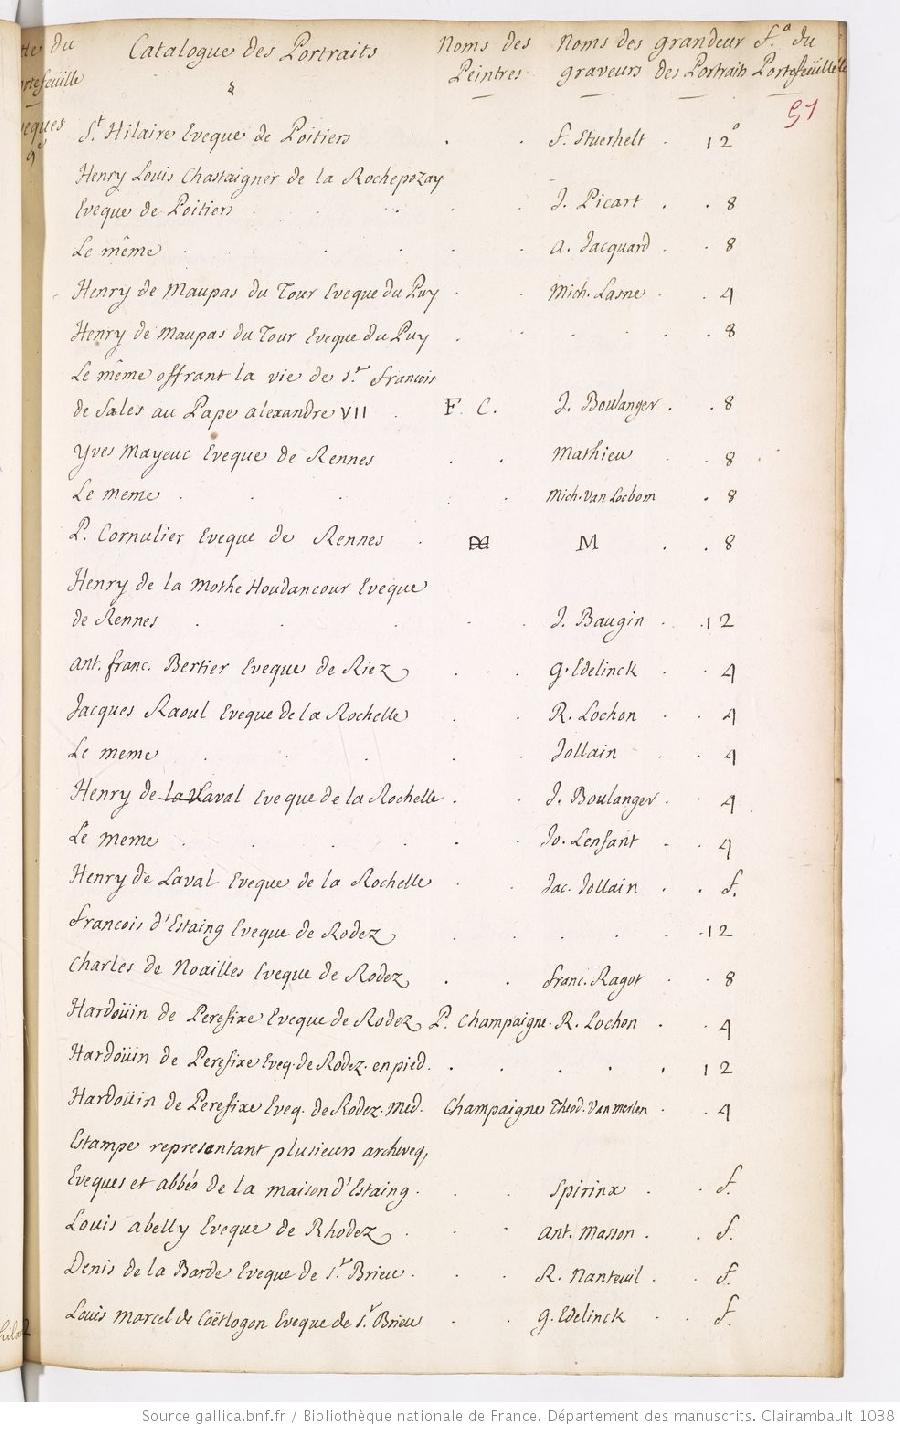 Catalogue des Portraits Noms des Noms des grandeur f.a du
Peintres graveurs des Portraits Portefeüille
51
St Hilaire Eveque de Poitiers . . f. Stuerhelt . 12°
Henry Louis Chastaigner de la Rochepozay
Eveque de Poitiers . . . . J. Picart . . 8
Le même . . . . . A. Jacquard . . 8
Henry de Maupas du Tour Eveque du Puy . . Mich. Lasne . . 4
Henry de Maupas du Tour Eveque du Puy . . . . 8
Le même offrant la vie de St. francois
de Sales au Pape alexandre VII . F. C. J. Boulanger . . 8
Yves Mayeuc Eveque de Rennes . . Mathieu . 8
Le meme . . . . . Mich. van Lochom . 8
P. Cornulier Eveque de Rennes . M . . 8
Henry de la Mothe Houdancour Eveque
de Rennes . . . . . J. Baugin . . 12
ant. franc. Bertier Eveque de Riez . . G. Edelinck . . 4
Jacques Raoul Eveque de la Rochelle . . R. Lochon . . 4
Le meme . . . . . Jollain . . 4
Henry de Laval Eveque de la Rochelle . . J. Boulanger . 4
Le meme . . . . . Jo. Lenfant . . 4
Henry de Laval Eveque de la Rochelle . . Jac. Jollain . . f.
francois d'Estaing Eveque de Rodez . . . . . 12
Charles de Noailles Eveque de Rodez . . franc. Ragot . . 8
Hardoüin de Perefixe Eveque de Rodez P. Champaigne R. Lochon . . 4
Hardoüin de Perefixe Eveq. de Rodez. en pied. . . . . . 12
Hardoüin de Perefixe Eveq. de Rodez. med. Champaigne Theod. Van merlen . . 4
Estampe representant plusieurs archeveq,
Eveques et abbés de la maison d'Estaing . . . Spirinx . . f.
Louis abelly Eveque de Rhodez . . . ant. Masson . . f.
Denis de la Barde Eveque de St. Brieu . . . R. Nanteuil . . f.
Louis Marcel de Coëtlogon Eveque de St. Brieu . . G. Edelinck . . f.
Source gallica.bnf.fr / Bibliothèque nationale de France. Département des manuscrits. Clairambault 1038